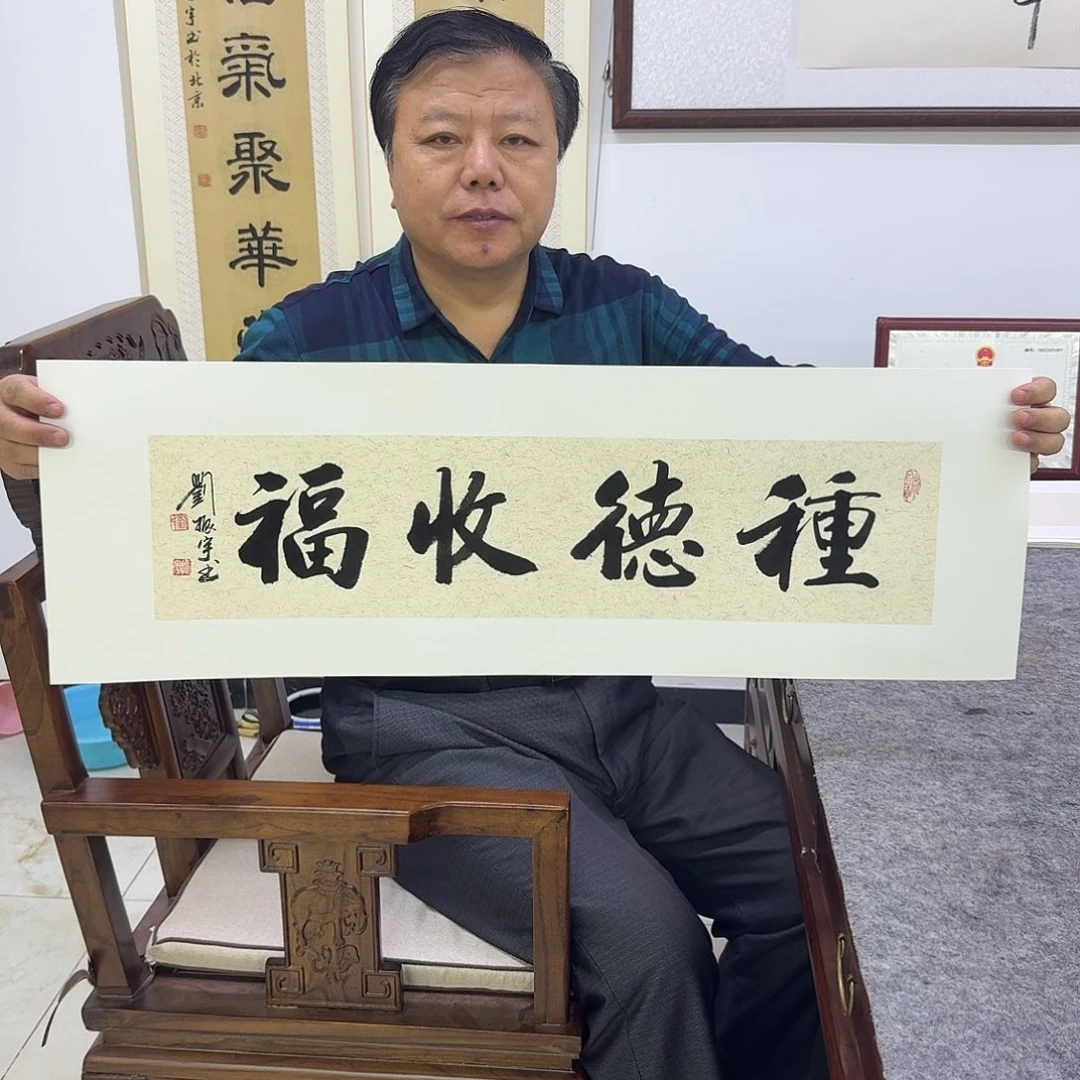 種德收福
劉振宇书
氣聚華
宇书於北京